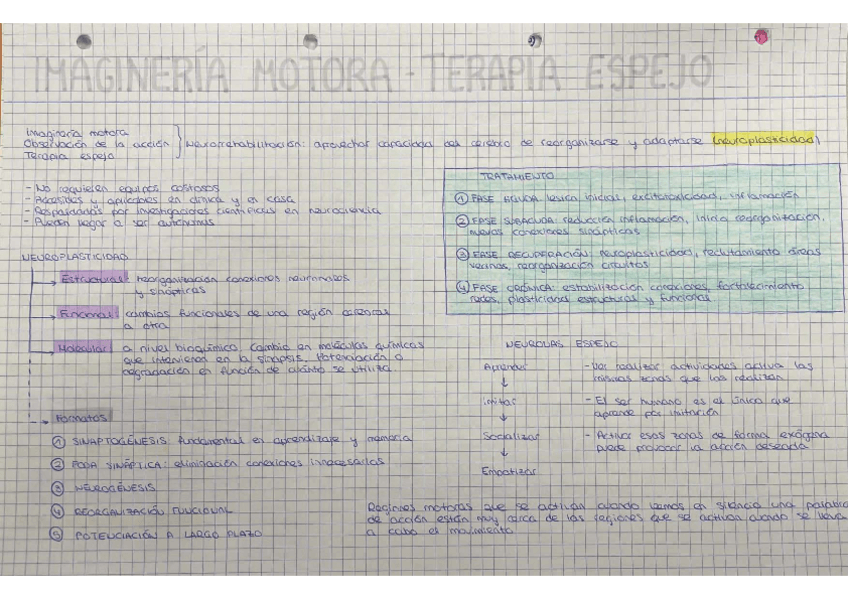 IMAGINERÍA MOTORA - TERAPIA ESPEJO
Imaginería motora
Observación de la acción
Terapia espejo
Neurorrehabilitación: aprovechar capacidad del cerebro de reorganizarse y adaptarse (neuroplasticidad)
- No requieren equipos costosos
- Accesibles y aplicables en clínica y en casa
- Respaldadas por investigaciones científicas en neurociencia
- Pueden llegar a ser autónomas
NEUROPLASTICIDAD
Estructural: reorganización conexiones neuronales
y sinápticas
Funcional: cambios funcionales de una región cerebral
a otra
Molecular: a nivel bioquímico. Cambio en moléculas químicas
que intervienen en la sinapsis. Potenciación o
degradación en función de cuánto se utiliza
Formatos
① SINAPTOGÉNESIS: fundamental en aprendizaje y memoria
② PODA SINÁPTICA: eliminación conexiones innecesarias
③ NEUROGÉNESIS
④ REORGANIZACIÓN FUNCIONAL
⑤ POTENCIACIÓN A LARGO PLAZO
TRATAMIENTO
① FASE AGUDA: lesión inicial, excitotoxicidad, inflamación
② FASE SUBAGUDA: reducción inflamación, inicia reorganización,
nuevas conexiones sinápticas
③ FASE RECUPERACIÓN: neuroplasticidad, reclutamiento áreas
vecinas, reorganización circuitos
④ FASE CRÓNICA: estabilización conexiones, fortalecimiento
redes, plasticidad estructural y funcional
NEURONAS ESPEJO
Aprender
↓
Imitar
↓
Socializar
↓
Empatizar
- Ver realizar actividades activa las
mismas zonas que las realizan
- El ser humano es el único que
aprende por imitación
- Activar esas zonas de forma exógena
puede provocar la acción deseada
Regiones motoras que se activan cuando leemos en silencio una palabra
de acción están muy cerca de las regiones que se activan cuando se lleva
a cabo el movimiento